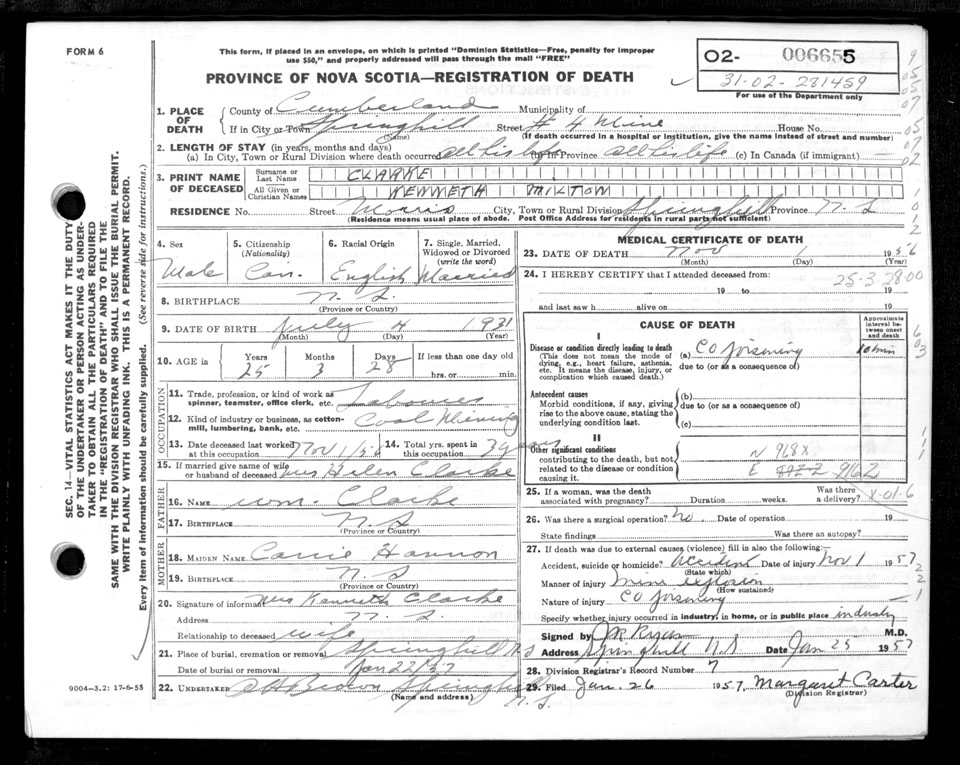 FORM 6
This form, if placed in an envelope, on which is printed "Dominion Statistics—Free, penalty for improper
use $50," and properly addressed will pass through the mail "FREE"
PROVINCE OF NOVA SCOTIA—REGISTRATION OF DEATH
02- 006655
31-02-281459
For use of the Department only
1. PLACE OF DEATH County of Cumberland Municipality of
If in City or Town Springhill Street # 4 Mine House No.
(Name) (If death occurred in a hospital or institution, give the name instead of street and number)
2. LENGTH OF STAY (in years, months and days)
(a) In City, Town or Rural Division where death occurred all his life (b) In Province all his life (c) In Canada (if immigrant) —
3. PRINT NAME OF DECEASED Surname or Last Name CLARKE
All Given or Christian Names KENNETH MILTON
RESIDENCE No. Street Morris City, Town or Rural Division Springhill Province N. S
(Residence means usual place of abode. Post Office Address for residents in rural parts not sufficient)
4. Sex Male
5. Citizenship (Nationality) Can.
6. Racial Origin English
7. Single, Married, Widowed or Divorced (write the word) Married
8. BIRTHPLACE N. S.
(Province or Country)
9. DATE OF BIRTH July 4 1931
(Month) (Day) (Year)
10. AGE in Years 25 Months 3 Days 28 If less than one day old
hrs. or min.
OCCUPATION
11. Trade, profession, or kind of work as spinner, teamster, office clerk, etc. Labourer
12. Kind of industry or business, as cotton-mill, lumbering, bank, etc. Coal Mining
13. Date deceased last worked at this occupation Nov 1/56 14. Total yrs. spent in this occupation 3 years
15. If married give name of wife or husband of deceased Mrs Helen Clarke
FATHER
16. NAME Wm. Clarke
17. BIRTHPLACE N. S
(Province or Country)
MOTHER
18. MAIDEN NAME Carrie Hannon
19. BIRTHPLACE N. S
(Province or Country)
20. Signature of informant Mrs Kenneth Clarke
Address N. S.
Relationship to deceased wife
21. Place of burial, cremation or removal Springhill N.S
Date of burial or removal Jan 22/57
22. UNDERTAKER Brown Springhill N. S.
(Name and address)
MEDICAL CERTIFICATE OF DEATH
23. DATE OF DEATH Nov 1 1956
(Month) (Day) (Year)
24. I HEREBY CERTIFY that I attended deceased from:
25-3 28-00
19 to 19
and last saw h alive on 19
CAUSE OF DEATH
Approximate interval between onset and death
I
Disease or condition directly leading to death (a) CO poisoning 10 min
(This does not mean the mode of dying, e.g., heart failure, asthenia, etc. It means the disease, injury, or complication which caused death.)
due to (or as a consequence of)
Antecedent causes (b)
Morbid conditions, if any, giving rise to the above cause, stating the underlying condition last.
due to (or as a consequence of)
(c)
II
Other significant conditions
contributing to the death, but not related to the disease or condition causing it.
N 968X
E 962
25. If a woman, was the death associated with pregnancy? Duration weeks. Was there a delivery? X-01-6
26. Was there a surgical operation? No. Date of operation 19
State findings Was there an autopsy?
27. If death was due to external causes (violence) fill in also the following:
Accident, suicide or homicide? Accident Date of injury Nov 1 1957
(State which)
Manner of injury mine explosion
(How sustained)
Nature of injury CO poisoning
Specify whether injury occurred in industry, in home, or in public place industry
Signed by M.D.
Address Springhill N.S Date Jan 25 1957
28. Division Registrar's Record Number 7
29. Filed Jan. 26 1957, Margaret Carter
(Division Registrar)
9004—3.2: 17-6-55
SEC. 14—VITAL STATISTICS ACT MAKES IT THE DUTY
OF THE UNDERTAKER OR PERSON ACTING AS UNDER-
TAKER TO OBTAIN ALL THE PARTICULARS REQUIRED
IN THE "REGISTRATION OF DEATH" AND TO FILE THE
SAME WITH THE DIVISION REGISTRAR WHO SHALL ISSUE THE BURIAL PERMIT.
WRITE PLAINLY WITH UNFADING INK. THIS IS A PERMANENT RECORD.
Every item of information should be carefully supplied. (See reverse side for instructions.)